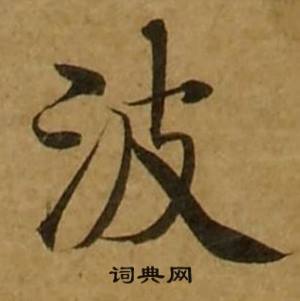 波
词典网